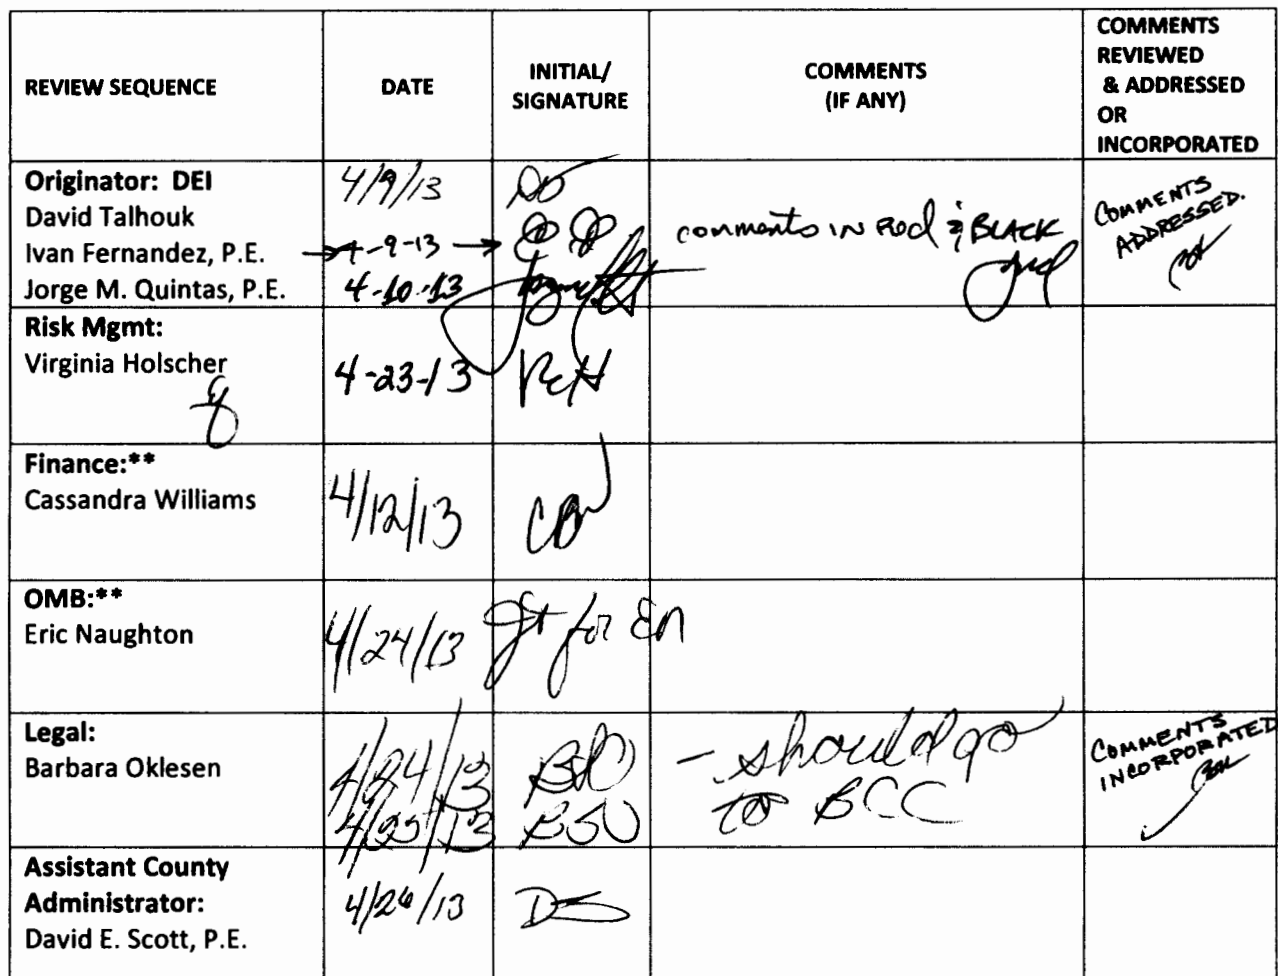 REVIEW SEQUENCE
DATE
INITIAL/
SIGNATURE
COMMENTS
(IF ANY)
COMMENTS
REVIEWED
& ADDRESSED
OR
INCORPORATED
Originator: DEI
David Talhouk
Ivan Fernandez, P.E.
Jorge M. Quintas, P.E.
4/9/13
4-9-13
4-10-13
comments in Red & BLACK
COMMENTS
ADDRESSED.
Risk Mgmt:
Virginia Holscher
4-23-13
Finance:**
Cassandra Williams
4/12/13
OMB:**
Eric Naughton
4/24/13
for EN
Legal:
Barbara Oklesen
4/24/13
4/25/13
BSO
- should go
to BCC
COMMENTS
INCORPORATED
Assistant County
Administrator:
David E. Scott, P.E.
4/26/13
DS